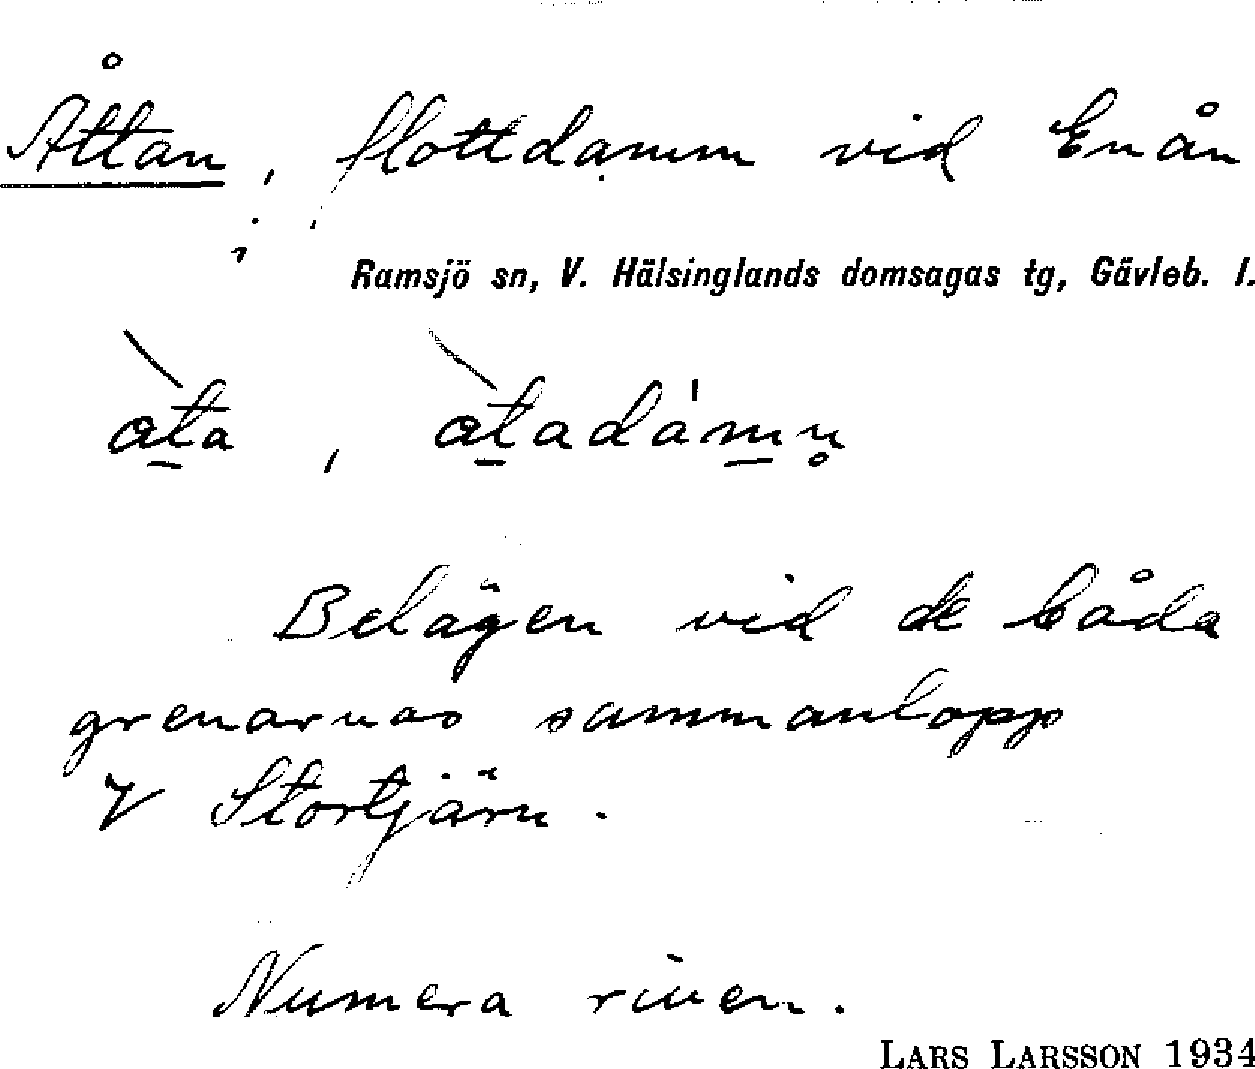 Åttan, flottdamm vid Enån
Ramsjö sn, V. Hälsinglands domsagas tg, Gävleb. l.
Belägen vid de båda
grenarnas sammanlopp
V Stortjärn.
Numera riven.
LARS LARSSON 1934